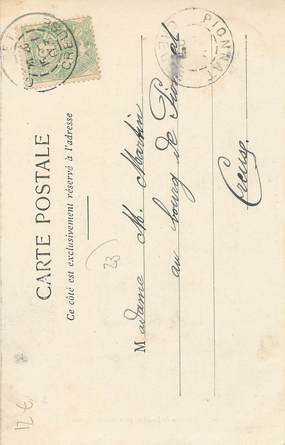 CARTE POSTALE
Ce côté est exclusivement réservé à l'adresse
Madame M. Martin
au bourg de Pionnat
Creuse
PIONNAT
CREUSE
23
12 €